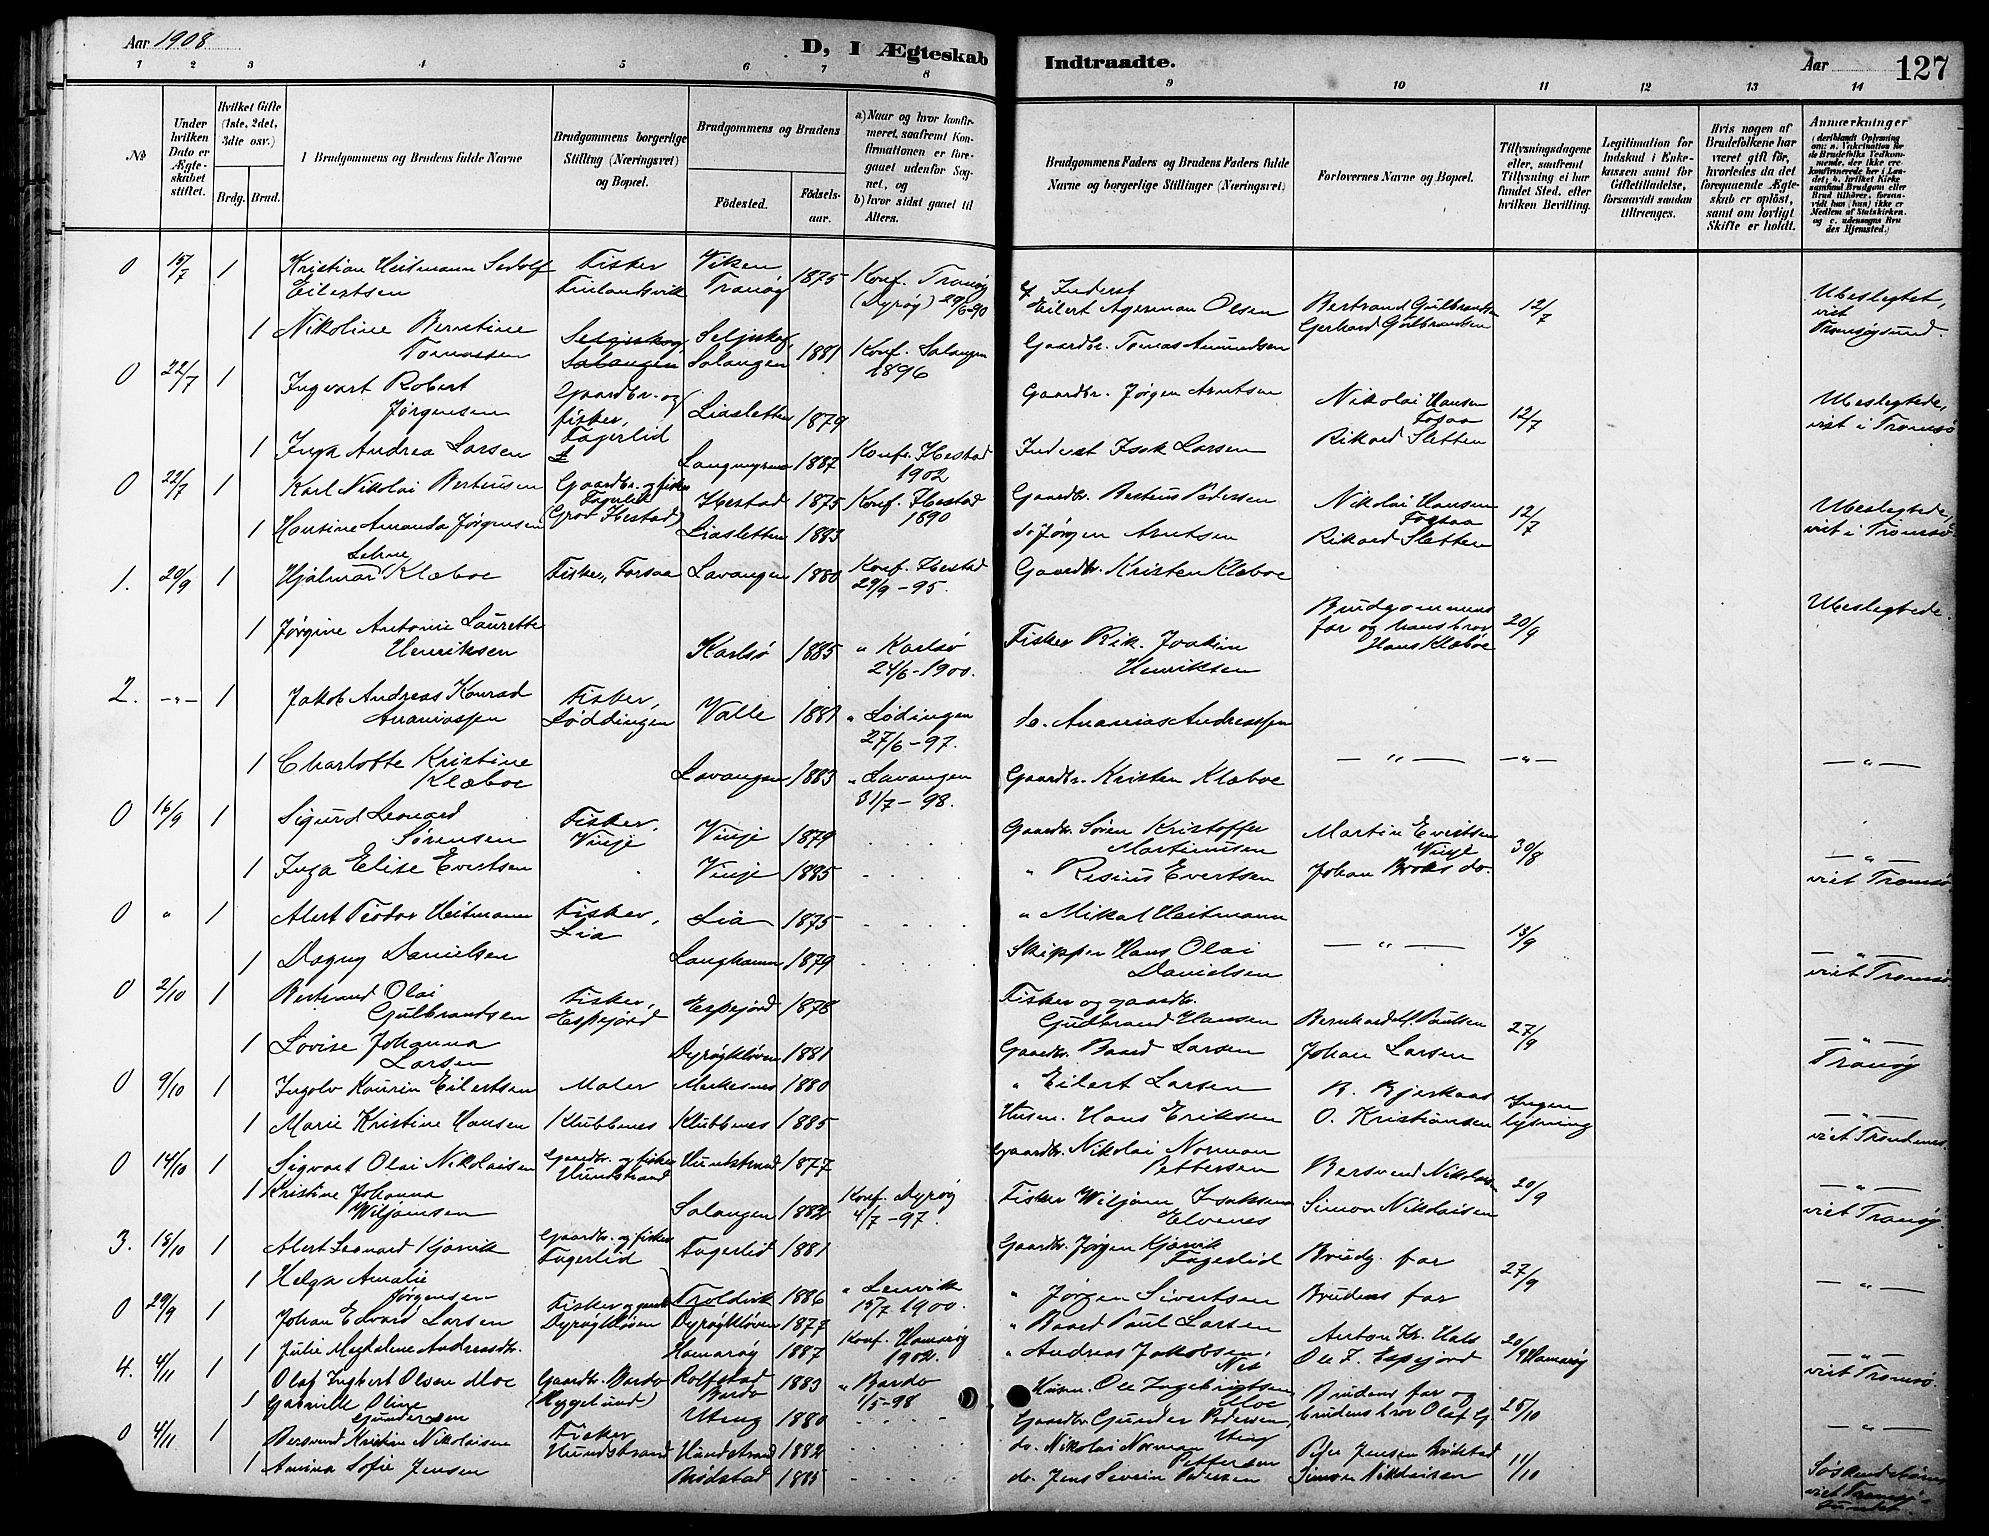 Aar 1908
D, I Ægteskab Indtraadte.
Aar 127
1 2 3 4 5 6 7 8 9 10 11 12 13 14
No
Under hvilken Dato er Ægteskabet stiftet.
Hvilket Gifte (1ste, 2det, 3die osv.)
Brdg. Brud.
Brudgommens og Brudens fulde Navne
Brudgommens borgerlige Stilling (Næringsvei) og Bopæl.
Brudgommens og Brudens
Fødested. Fødsels-aar.
a) Naar og hvor konfirmeret, saafremt Konfirmationen er foregaaet udenfor Sognet, og
b) hvor sidst gaaet til Alters.
Brudgommens Faders og Brudens Faders fulde Navne og borgerlige Stillinger (Næringsvei)
Forlovernes Navne og Bopæl.
Tillysningsdagene eller, saafremt Tillysning ei har fundet Sted, efter hvilken Bevilling.
Legitimation for Indskud i Enkekassen samt for Giftetilladelse, forsaavidt saadan tiltrænges.
Hvis nogen af Brudefolkene har været gift før, hvorledes da det foregaaende Ægteskab er opløst, samt om lovligt Skifte er holdt.
Anmærkninger
0 15/7 1 Kristian Heitmann Sedolf Eilertsen Fisker Finlandsvik Viken Tranøy 1875 Konf. Tranøy (Dyrøy) 29/6-90 Inderst Eilert Agerman Olsen Bertrand Gulbrandsen Gerhard Gulbrandsen 12/7 Ubeslegtet, viet Tromsøsund.
1 Nikoline Berntine Tomassen Seljeskog, Salangen Seljeskog, Salangen 1881 Konf. Salangen 1896 Gaardbr. Tomas Amundsen
0 22/7 1 Ingvart Robert Jørgensen Gaardbr. og fisker, Fagerlid Liasletten 1879 Gaardbr. Jørgen Arntsen Nikolai Hansen Fossaa Rikard Sletten 12/7 Ubeslegtede, viet i Tromsø
1 Inga Andrea Larsen Langmyren 1887 Konf. Ibestad 1902 Inderst Isak Larsen
0 22/7 1 Karl Nikolai Berteusen Gaardbr. og fisker Fagerlid (Grov Ibestad) Ibestad 1875 Konf. Ibestad 1890 Gaardbr. Berteus Pedersen Nikolai Hansen Fossaa Rikard Sletten 12/7 Ubeslegtede, viet i Tromsø
1 Hantine Amanda Jørgensen Liasletten 1883 do Jørgen Arntsen
1. 20/9 1 Hjalmar Klæboe Fisker, Forsaa Lavangen 1880 Konf. Ibestad 29/9-95. Gaardbr. Kristen Klæboe Brudgommens far og hans bror Hans Klæboe 20/9 Ubeslegtede.
1 Jørgine Antonie Laurette Henriksen Karlsø 1885 " Karlsø 24/6-1900. Fisker Rik. Joakim Henriksen
2. -"- 1 Jakob Andreas Konrad Ananiassen Fisker, Løddingen Valle 1881 " Lødingen 27/6-97. do. Ananias Andreassen
1 Charlotte Kristine Klæboe Lavangen 1883 " Lavangen 31/7-98. Gaardbr. Kristen Klæboe -"- -"- -"-
0 16/9 1 Sigurd Leonard Sørensen Fisker, Vinje Vinje 1879 Gaardbr. Søren Kristoffer Martinusen Martin Evertsen Vinje Johan Broks do. 30/8 -"- viet Tromsø
1 Inga Elise Evertsen Vinje 1885 " Risius Evertsen
0 " 1 Alert Teodor Heitmann Fisker, Lia Lia 1875 " Mikal Heitmann -"- 13/9 -"- viet Tromsø.
1 Dagny Danielsen Langhamn 1879 Skipper Hans Olai Danielsen
0 2/10 1 Bertrand Olai Gulbrandsen Fisker, Espejord Espejord 1878 Fisker og gaardbr. Gudbrand Hansen Bernhard M. Paulsen Johan Larsen 27/9 -"- Tranøy
1 Lovise Johanna Larsen Dyrøykløven 1881 Gaardbr. Baard Larsen
0 9/10 1 Ingolv Kaurin Eilertsen Maler Merkesnes 1880 " Eilert Larsen B. Bjerkaas O. Kristiansen Ingen lysning -"- viet Trondenes.
1 Marie Kristine Hansen Klubbnes Klubbnes 1885 Husm. Hans Eriksen
0 14/10 1 Sigvart Olai Nikolaisen Gaardbr. og fisker Hundstrand Hundstrand 1877 Gaardbr. Nikolai Norman Pettersen Bersvend Nikolaisen Simon Nikolaisen 20/9 -"- viet Tranøy
1 Kristine Johanna Wiljamsen Salangen 1882 Konf. Dyrøy 4/7-97. Fisker Wiljam Isaksen Elvenes
3. 18/10 1 Alert Leonard Kjørvik Gaardbr. og fisker Fagerlid Fagerlid 1881 Gaardbr. Jørgen Kjørvik Fagerlid Brudg. far Brudens far 27/9 -"-
1 Helga Amalie Jørgensen Troldvik 1886 " Lenvik 15/7 1900. " Jørgen Sivertsen
0 29/9 1 Johan Edvard Larsen Fisker Dyrøykløven Dyrøykløven 1877 " Baard Paul Larsen Anton Kr. Hals Ole J. Espejord 20/9 Hamarøy -"- viet Tromsø.
1 Julie Magdalene Andreasdtr. Hamarøy 1887 Konf. Hamarøy 1902. " Andreas Jakobsen, Nes
4. 4/11 1 Olaf Ingbert Olsen Moe Gaardbr. Bardo (Hyggelund) Rolfstad Bardo 1883 " Bardo 1/5-98 Husm. Ole Ingebrigtsen Moe Brudens far og brudens bror Olaf G. 25/10 -"-
1 Gabrielle Oline Gundersen Uteng 1880 Gaardbr. Gunder Pedersen Uteng
0 4/11 1 Bersvend Kristin Nikolaisen Fisker Hundstrand Hundstrand 1882 do. Nikolai Norman Pettersen Peder Jensen Brødstad Simon Nikolaisen 11/10 Søskendebørn, viet Tromsøsundet.
1 Amina Sofie Jensen Brødstad 1885 do. Jens Severin Pedersen